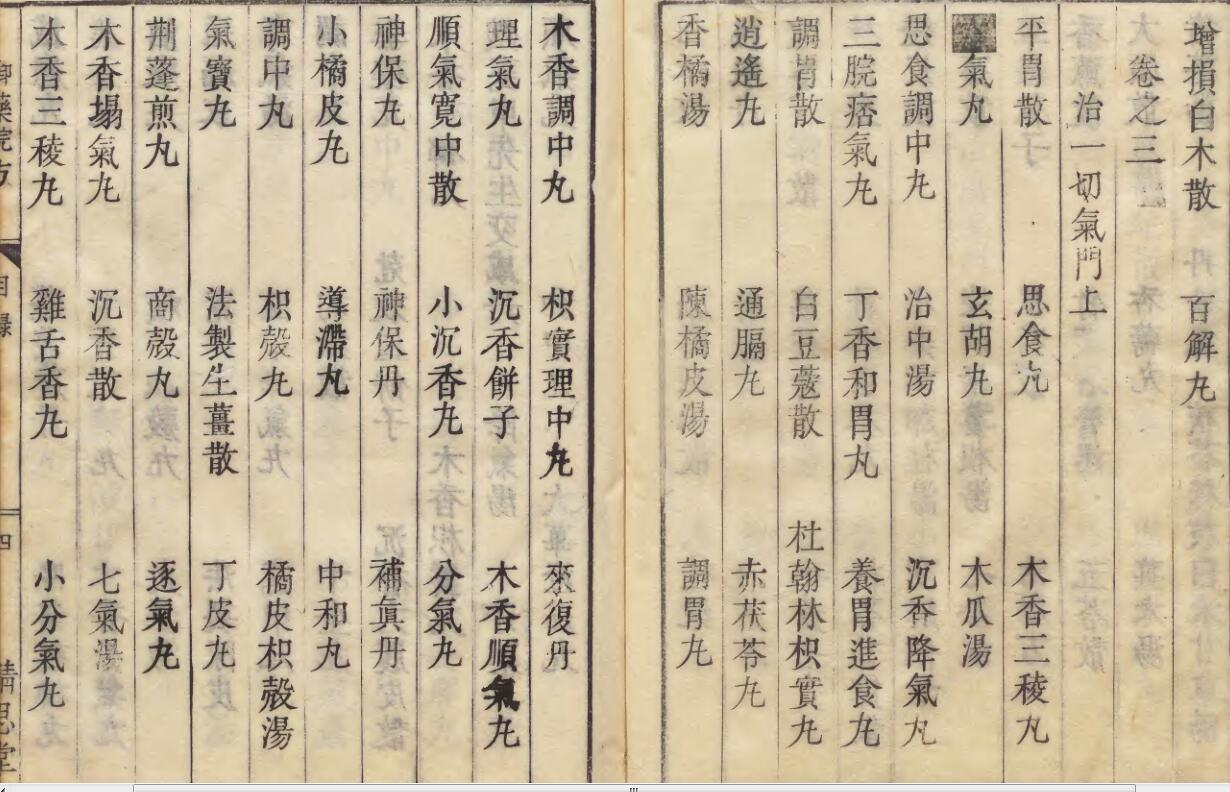 增損白朮散 百解丸
卷之三
治一切氣門上
平胃散 思食丸 木香三稜丸
氣丸 玄胡丸 木瓜湯
思食調中丸 治中湯 沉香降氣丸
三脘痞氣丸 丁香和胃丸 養胃進食丸
調胃散 白豆蔻散 杜翰林枳實丸
逍遙丸 通膈丸 赤茯苓丸
香橘湯 陳橘皮湯 調胃丸
木香調中丸 枳實理中丸 來復丹
理氣丸 沉香餅子 木香順氣丸
順氣寬中散 小沉香丸 分氣丸
神保丸 神保丹 補眞丹
小橘皮丸 導滯丸 中和丸
調中丸 枳殼丸 橘皮枳殼湯
氣寶丸 法製生薑散 丁皮丸
荆蓬煎丸 商殼丸 逐氣丸
木香塌氣丸 沉香散 七氣湯
木香三稜丸 雞舌香丸 小分氣丸
御藥院方 目錄 四 精思堂